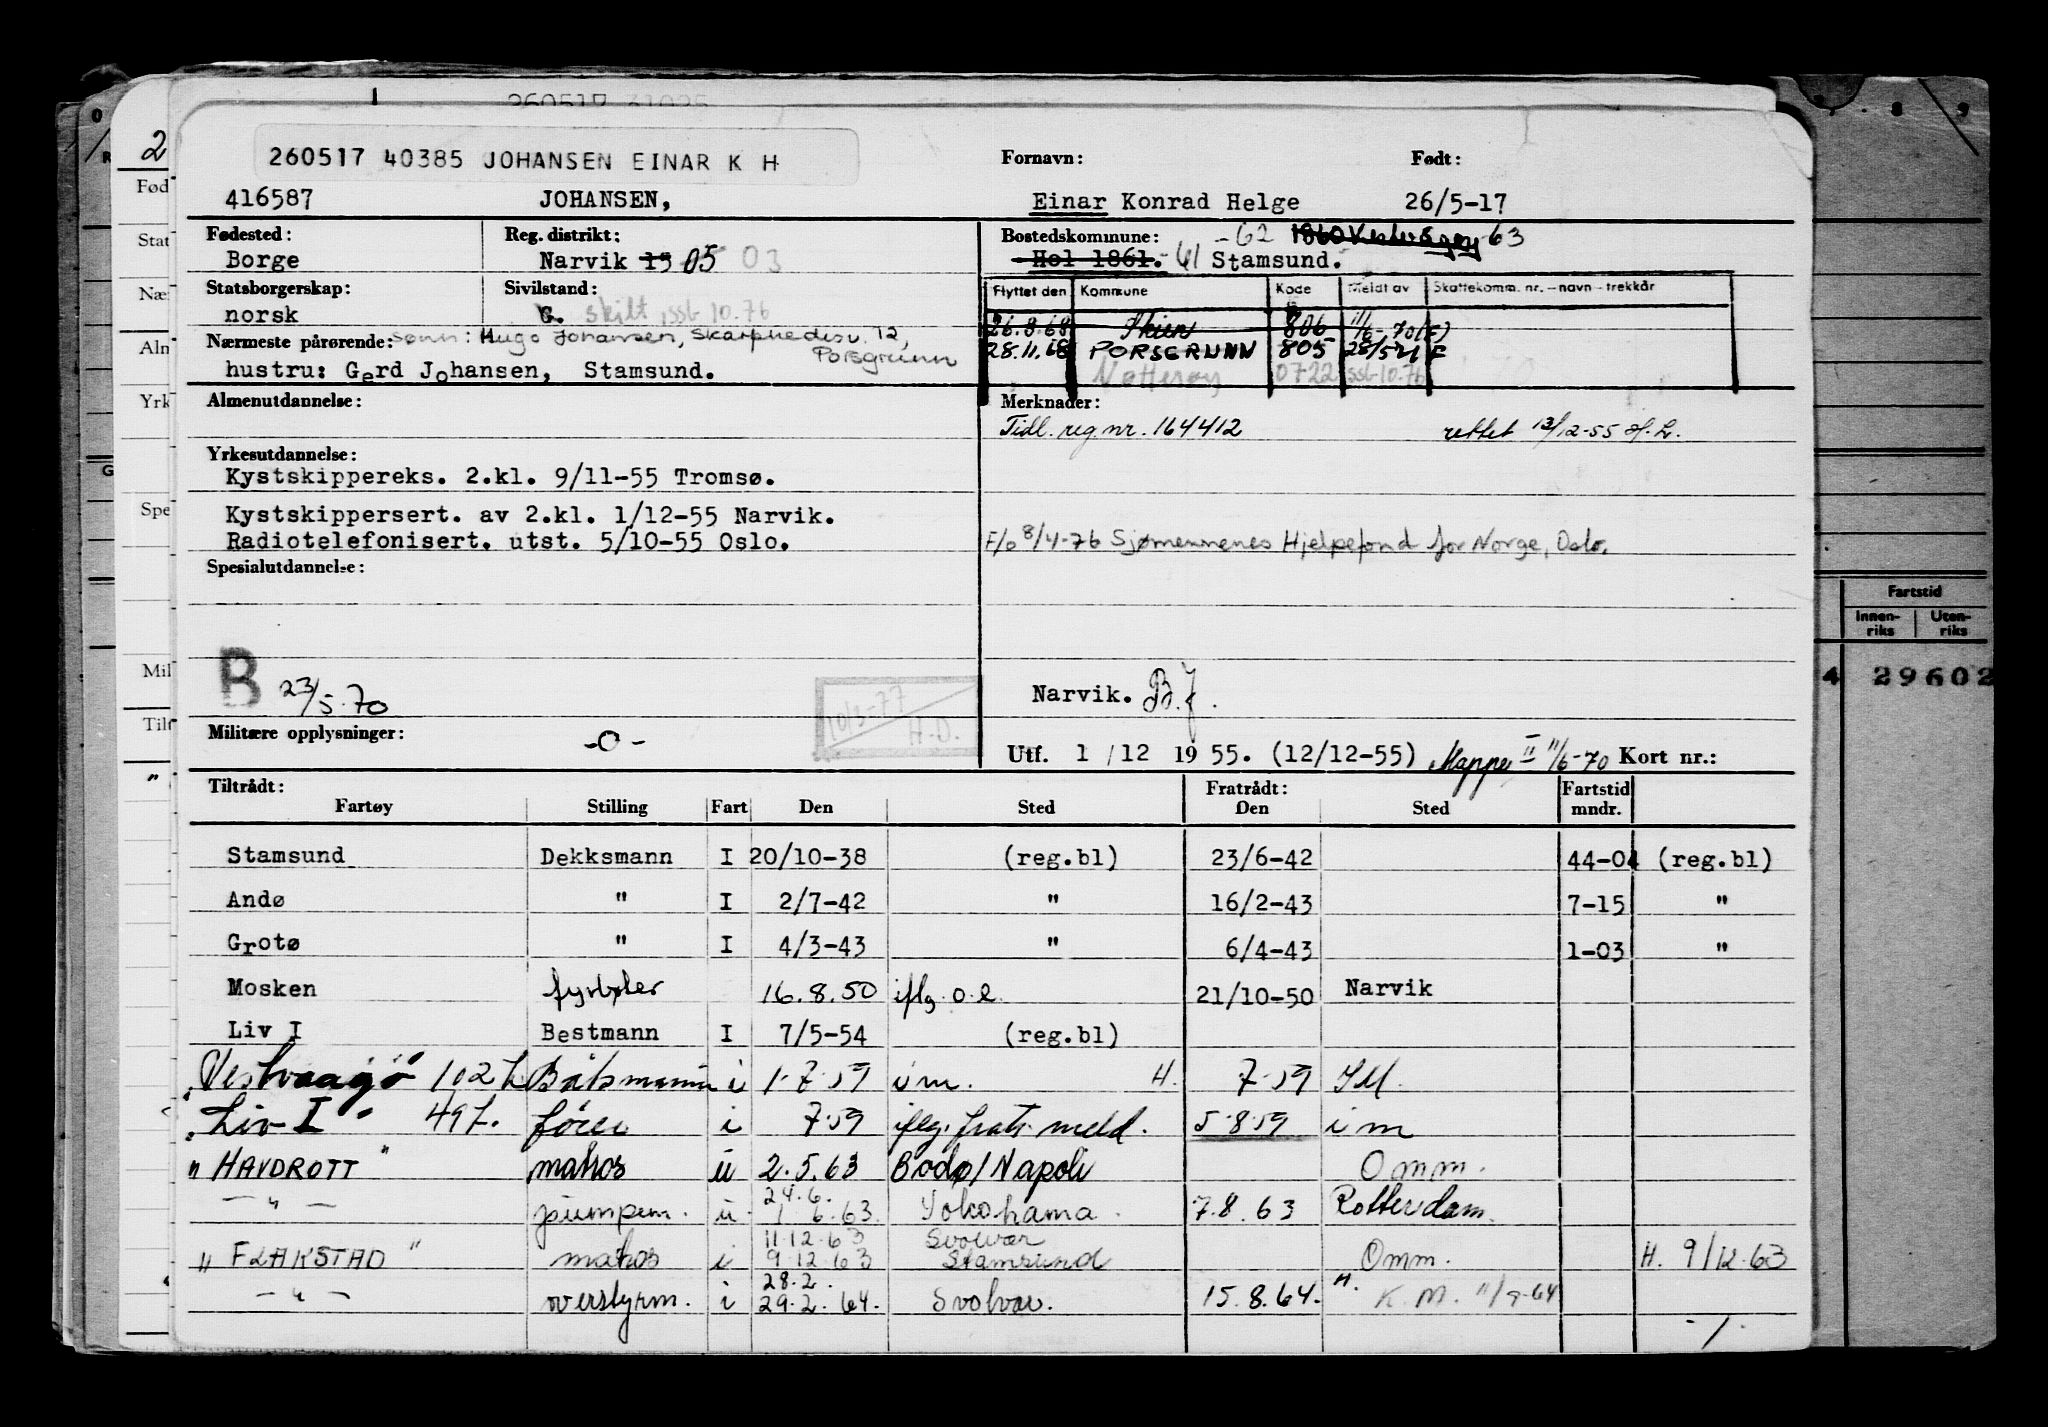 260517 40385 JOHANSEN EINAR K H
Fornavn: Født:
416587 JOHANSEN, Einar Konrad Helge 26/5-17
Fødested: Reg. distrikt: Bostedskommune: -62 1860 Vestvågøy 63
Borge Narvik 15 05 03 Hol 1861. -61 Stamsund.
Statsborgerskap: Sivilstand: Flyttet den Kommune Kode Meldt av Skattekomm. nr. – navn – trekkår
norsk G. skilt ssb 10.76
26.8.68 Skien 806 11/6-70 (F)
Nærmeste pårørende: sønn: Hugo Johansen, Skarphedinsv. 12, Porsgrunn
28.11.68 PORSGRUNN 805 28/5 71 F
hustru: Gerd Johansen, Stamsund.
Nøtterøy 0722 ssb 10.76
Almenutdannelse: Merknader:
Tidl. reg nr. 164412 rettet 13/12-55
Yrkesutdannelse:
Kystskippereks. 2.kl. 9/11-55 Tromsø.
Kystskippersert. av 2.kl. 1/12-55 Narvik.
Radiotelefonisert. utst. 5/10-55 Oslo.
F/o 8/4-76 Sjømennenes Hjelpefond for Norge, Oslo.
Spesialutdannelse:
B 23/5.70
10/3-77 H.D.
Narvik. B.J.
Militære opplysninger: -0-
Utf. 1 / 12 19 55. (12/12-55) Mappe II 11/6-70 Kort nr.:
Tiltrådt: Fratrådt: Fartstid
Fartøy Stilling Fart Den Sted Den Sted mndr.
Stamsund Dekksmann I 20/10-38 (reg.bl) 23/6-42 44-04 (reg.bl)
Andø " I 2/7-42 " 16/2-43 7-15 "
Grotø " I 4/3-43 " 6/4-43 1-03 "
Mosken fyrbøter 16.8.50 iflg. o.l. 21/10-50 Narvik
Liv I Bestmann I 7/5-54 (reg.bl)
"Vestvaagø" 102 t. Båtsmann i 1-7-59 i m. H. 7-59 IM.
"Liv I" 49 t. fører i 7-59 iflg. fratr. meld. 5-8-59 i m
"HAVDROTT" matros u 2.5.63 Bodø/Napoli Omm.
— " — pumpem. u 24.6. 1 6.63. Yokohama. 7.8.63 Rotterdam.
11.12.63 Svolvær
"FLAKSTAD" matros i 9.12.63 Stamsund Omm. H. 9/12.63
28.2.
— " — overstyrm. i 29.2.64. Svolvær. 15.8.64. ". K.M. 11/9-64
-/-
Fartstid
Innen-riks Uten-riks
4 29602